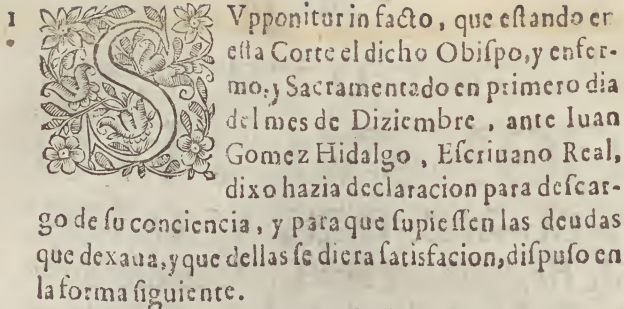 1 SVpponitur in facto, que eſtando en
eſta Corte el dicho Obiſpo, y enfer-
mo, y Sacramentado en primero dia
del mes de Diziembre , ante Iuan
Gomez Hidalgo , Eſcriuano Real,
dixo hazia declaracion para deſcar-
go de ſu conciencia, y para que ſupieſſen las deudas
que dexaua, y que dellas ſe diera ſatisfacion, diſpuſo en
la forma ſiguiente.